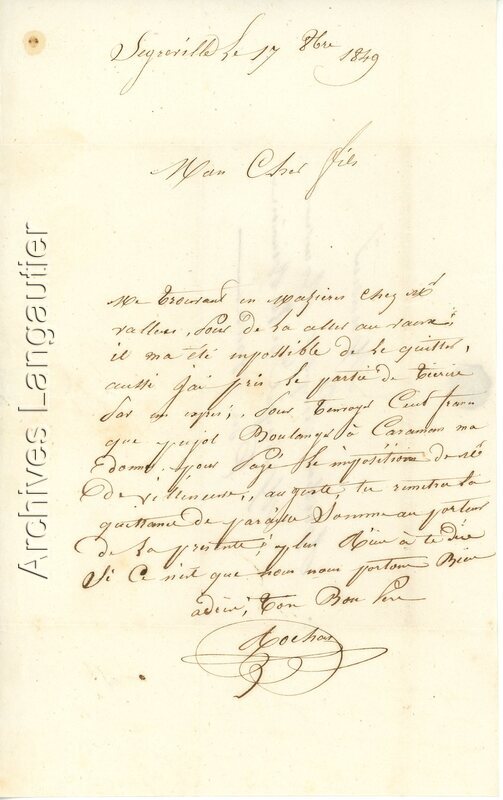 Segreville le 17 8bre 1849
Mon Cher fils
Me trouvant en Mazieres chez Mr
vallees, pour de la aller au
il ma été impossible de le quitter,
aussi j'ai pris le partie de
par un expres, pour tenvoyer Cent francs
que pujol Boulanger à Caraman ma
donné pour payé le impositions de Mr
De villeneuve, auguste, tu remettra la
quittance de pareille Somme au porteur
de la presente; plus Rien à te dire
Si Ce n'est que nous nous portons Bien
adieu, ton Bon pere
Rochas
Archives Langautier